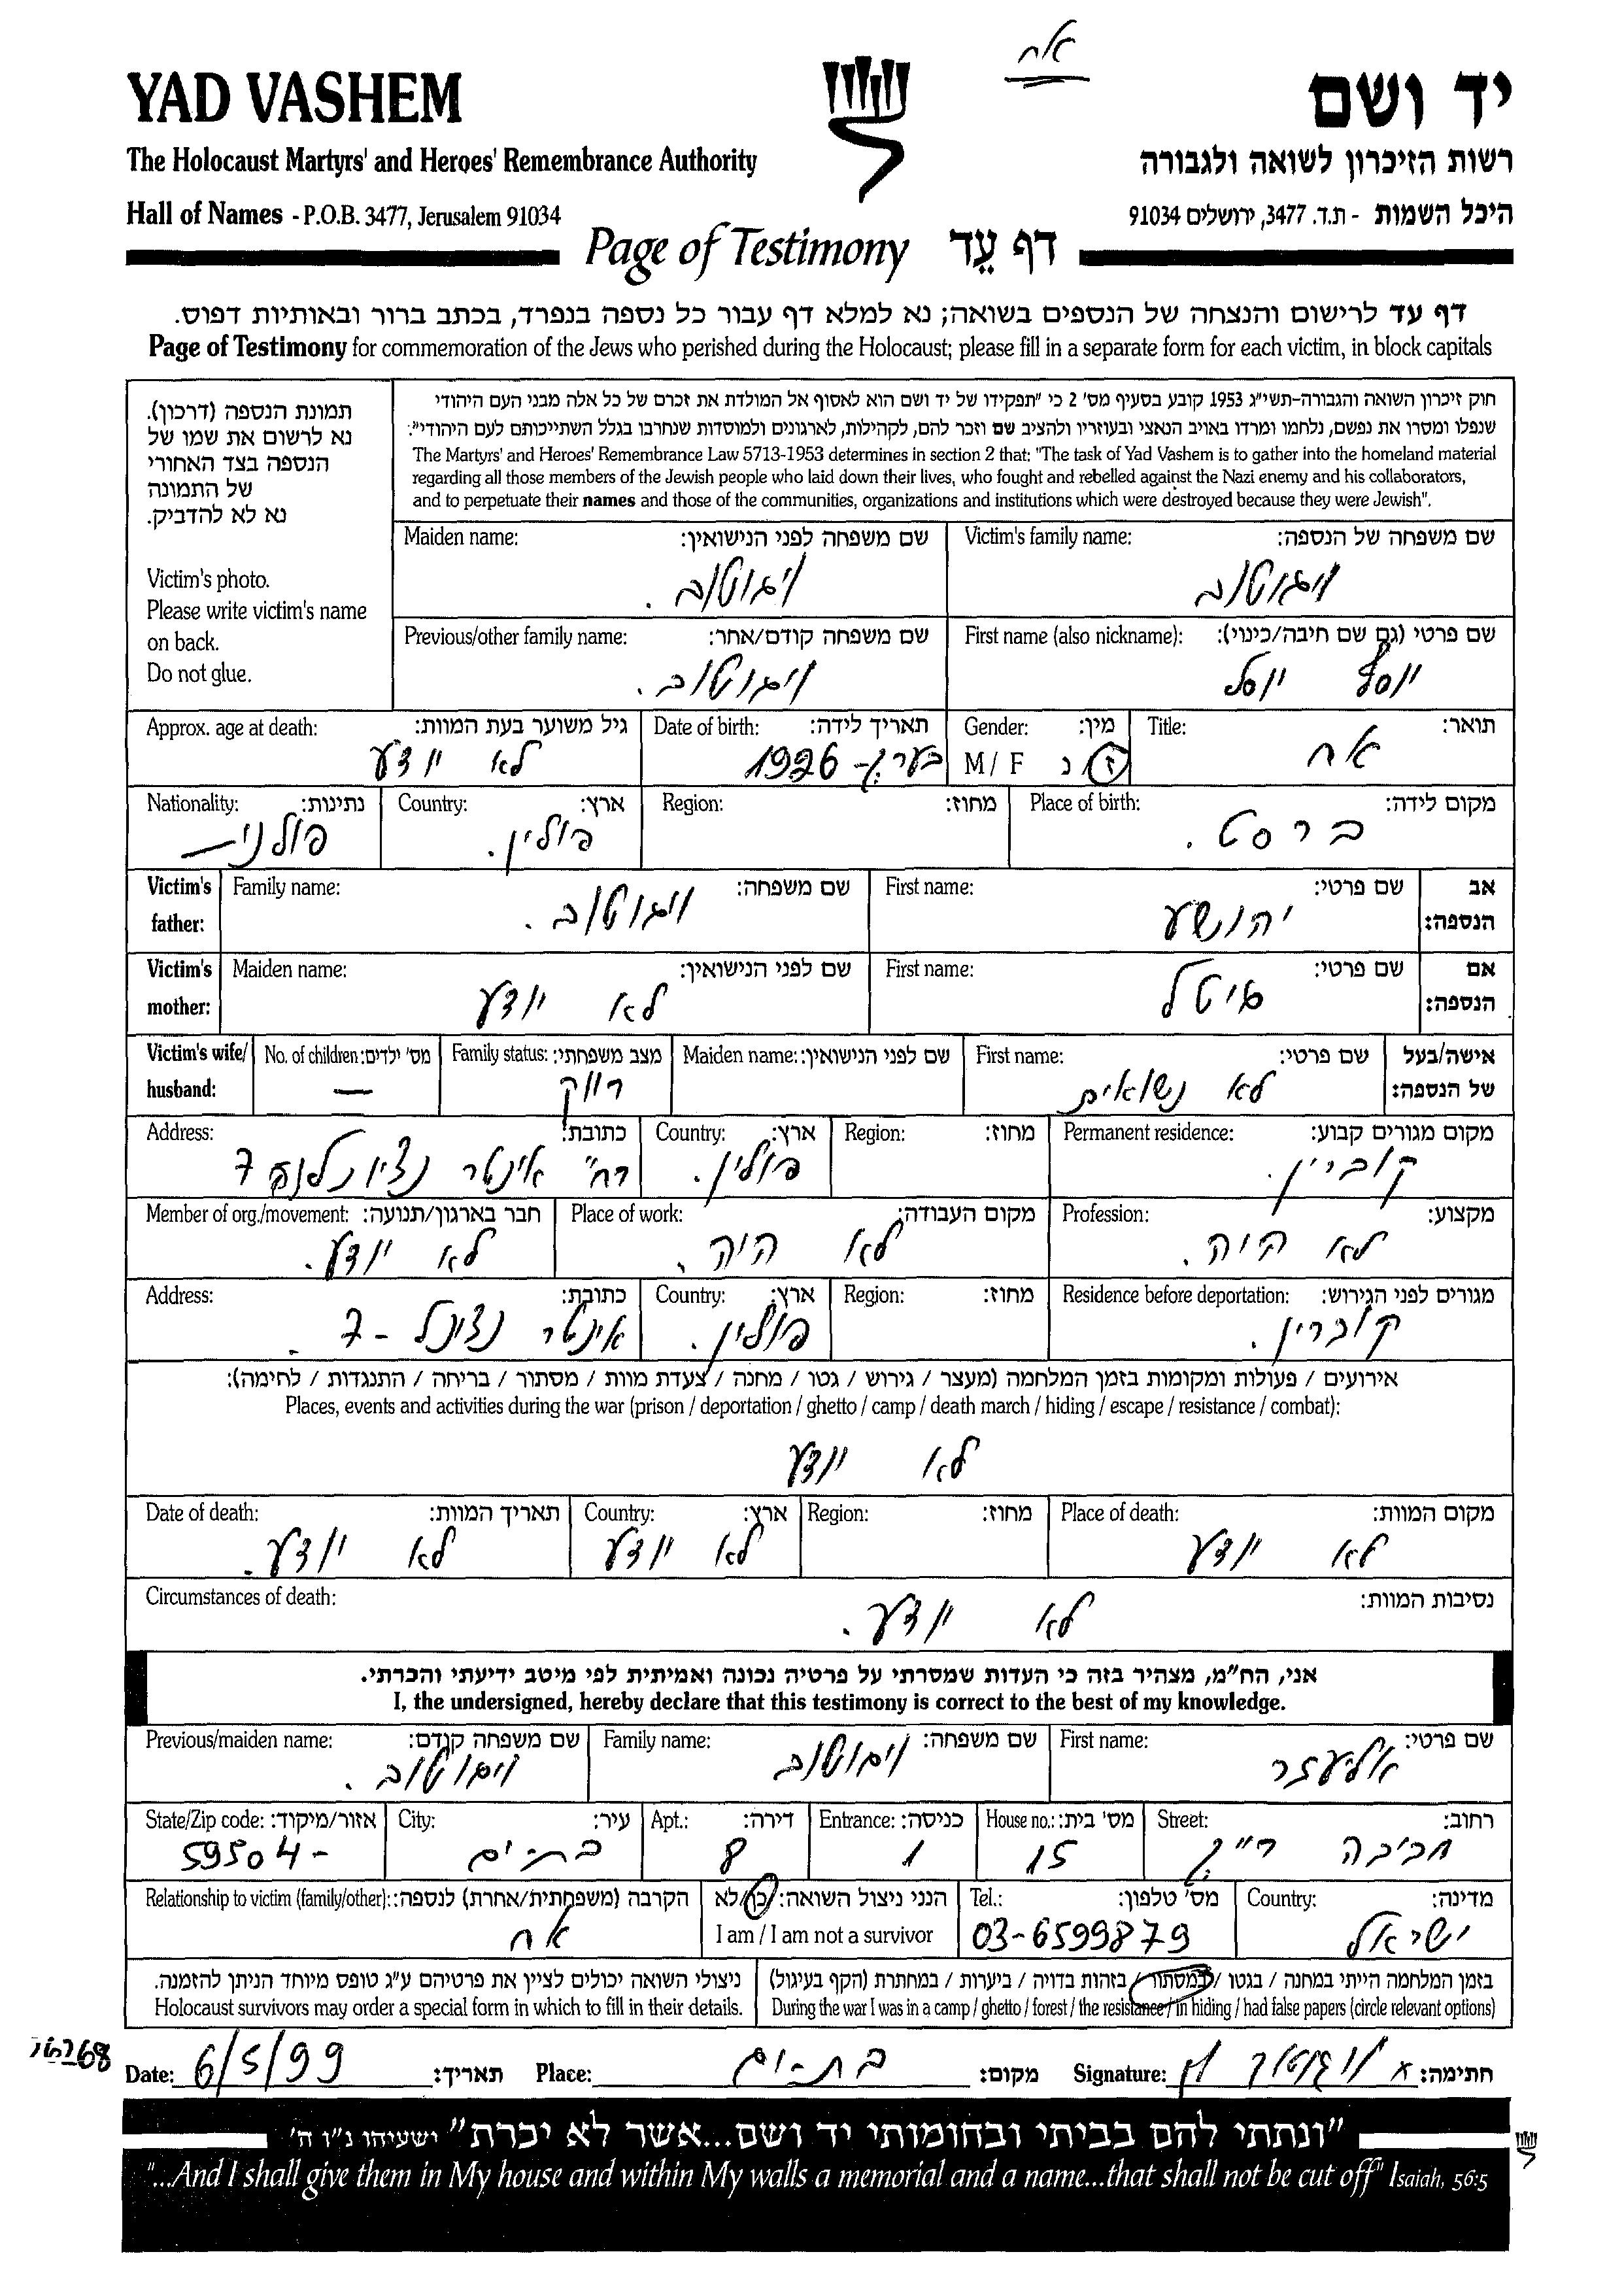 אח
YAD VASHEM
יד ושם
The Holocaust Martyrs' and Heroes' Remembrance Authority
רשות הזיכרון לשואה ולגבורה
Hall of Names - P.O.B. 3477, Jerusalem 91034
היכל השמות - ת.ד. 3477, ירושלים 91034
Page of Testimony דף עֵד
דף עד לרישום והנצחה של הנספים בשואה; נא למלא דף עבור כל נספה בנפרד, בכתב ברור ובאותיות דפוס.
Page of Testimony for commemoration of the Jews who perished during the Holocaust; please fill in a separate form for each victim, in block capitals
תמונת הנספה (דרכון).
נא לרשום את שמו של
הנספה בצד האחורי
של התמונה
נא לא להדביק.
Victim's photo.
Please write victim's name
on back.
Do not glue.
חוק זיכרון השואה והגבורה-תשי"ג 1953 קובע בסעיף מס' 2 כי "תפקידו של יד ושם הוא לאסוף אל המולדת את זכרם של כל אלה מבני העם היהודי
שנפלו ומסרו את נפשם, נלחמו ומרדו באויב הנאצי ובעוזריו ולהציב שם וזכר להם, לקהילות, לארגונים ולמוסדות שנחרבו בגלל השתייכותם לעם היהודי".
The Martyrs' and Heroes' Remembrance Law 5713-1953 determines in section 2 that: "The task of Yad Vashem is to gather into the homeland material
regarding all those members of the Jewish people who laid down their lives, who fought and rebelled against the Nazi enemy and his collaborators,
and to perpetuate their names and those of the communities, organizations and institutions which were destroyed because they were Jewish".
Victim's family name: שם משפחה של הנספה:
ויגוטוב
Maiden name: שם משפחה לפני הנישואין:
ויגוטוב.
First name (also nickname): שם פרטי (גם שם חיבה/כינוי):
יוסף יוסל
Previous/other family name: שם משפחה קודם/אחר:
ויגוטוב.
Title: תואר:
אח
Gender: מין:
M / F ז / נ
Date of birth: תאריך לידה:
בערך - 1926
Approx. age at death: גיל משוער בעת המוות:
לא יודע
Place of birth: מקום לידה:
ברסט.
Region: מחוז:
Country: ארץ:
פולין.
Nationality: נתינות:
פולני
Victim's father: אב הנספה:
First name: שם פרטי:
יהושע
Family name: שם משפחה:
ויגוטוב.
Victim's mother: אם הנספה:
First name: שם פרטי:
איטל
Maiden name: שם לפני הנישואין:
לא יודע
Victim's wife/ husband: אישה/בעל של הנספה:
First name: שם פרטי:
לא נשואים
Maiden name: שם לפני הנישואין:
Family status: מצב משפחתי:
רווק
No. of children: מס' ילדים:
—
Permanent residence: מקום מגורים קבוע:
קוברין.
Region: מחוז:
Country: ארץ:
פולין.
Address: כתובת:
רח' אינטר 7
Profession: מקצוע:
לא היה.
Place of work: מקום העבודה:
לא היה.
Member of org./movement: חבר בארגון/תנועה:
לא יודע.
Residence before deportation: מגורים לפני הגירוש:
קוברין.
Region: מחוז:
Country: ארץ:
פולין.
Address: כתובת:
אינטר נציונל - 7.
אירועים / פעולות ומקומות בזמן המלחמה (מעצר / גירוש / גטו / מחנה / צעדת מוות / מסתור / בריחה / התנגדות / לחימה):
Places, events and activities during the war (prison / deportation / ghetto / camp / death march / hiding / escape / resistance / combat):
לא יודע
Place of death: מקום המוות:
לא יודע
Region: מחוז:
Country: ארץ:
לא יודע
Date of death: תאריך המוות:
לא יודע.
Circumstances of death: נסיבות המוות:
לא יודע.
אני, הח"מ, מצהיר בזה כי העדות שמסרתי על פרטיה נכונה ואמיתית לפי מיטב ידיעתי והכרתי.
I, the undersigned, hereby declare that this testimony is correct to the best of my knowledge.
First name: שם פרטי:
אליעזר
Family name: שם משפחה:
ויגוטוב
Previous/maiden name: שם משפחה קודם:
ויגוטוב.
Street: רחוב:
חביבה רייך
House no.: מס' בית:
15
Entrance: כניסה:
1
Apt.: דירה:
8
City: עיר:
בת-ים
State/Zip code: אזור/מיקוד:
59504-
Country: מדינה:
ישראל
Tel.: מס' טלפון:
03-6599879
הנני ניצול השואה: כן/לא
I am / I am not a survivor
Relationship to victim (family/other): הקרבה (משפחתית/אחרת) לנספה:
אח
בזמן המלחמה הייתי במחנה / בגטו / במסתור / בזהות בדויה / ביערות / במחתרת (הקף בעיגול)
During the war I was in a camp / ghetto / forest / the resistance / in hiding / had false papers (circle relevant options)
ניצולי השואה יכולים לציין את פרטיהם ע"ג טופס מיוחד הניתן להזמנה.
Holocaust survivors may order a special form in which to fill in their details.
Date: 6/5/99 תאריך: Place: בת-ים מקום: Signature: חתימה:
"ונתתי להם בביתי ובחומותי יד ושם...אשר לא יכרת" ישעיהו נ"ו ה'
"...And I shall give them in My house and within My walls a memorial and a name...that shall not be cut off" Isaiah, 56:5